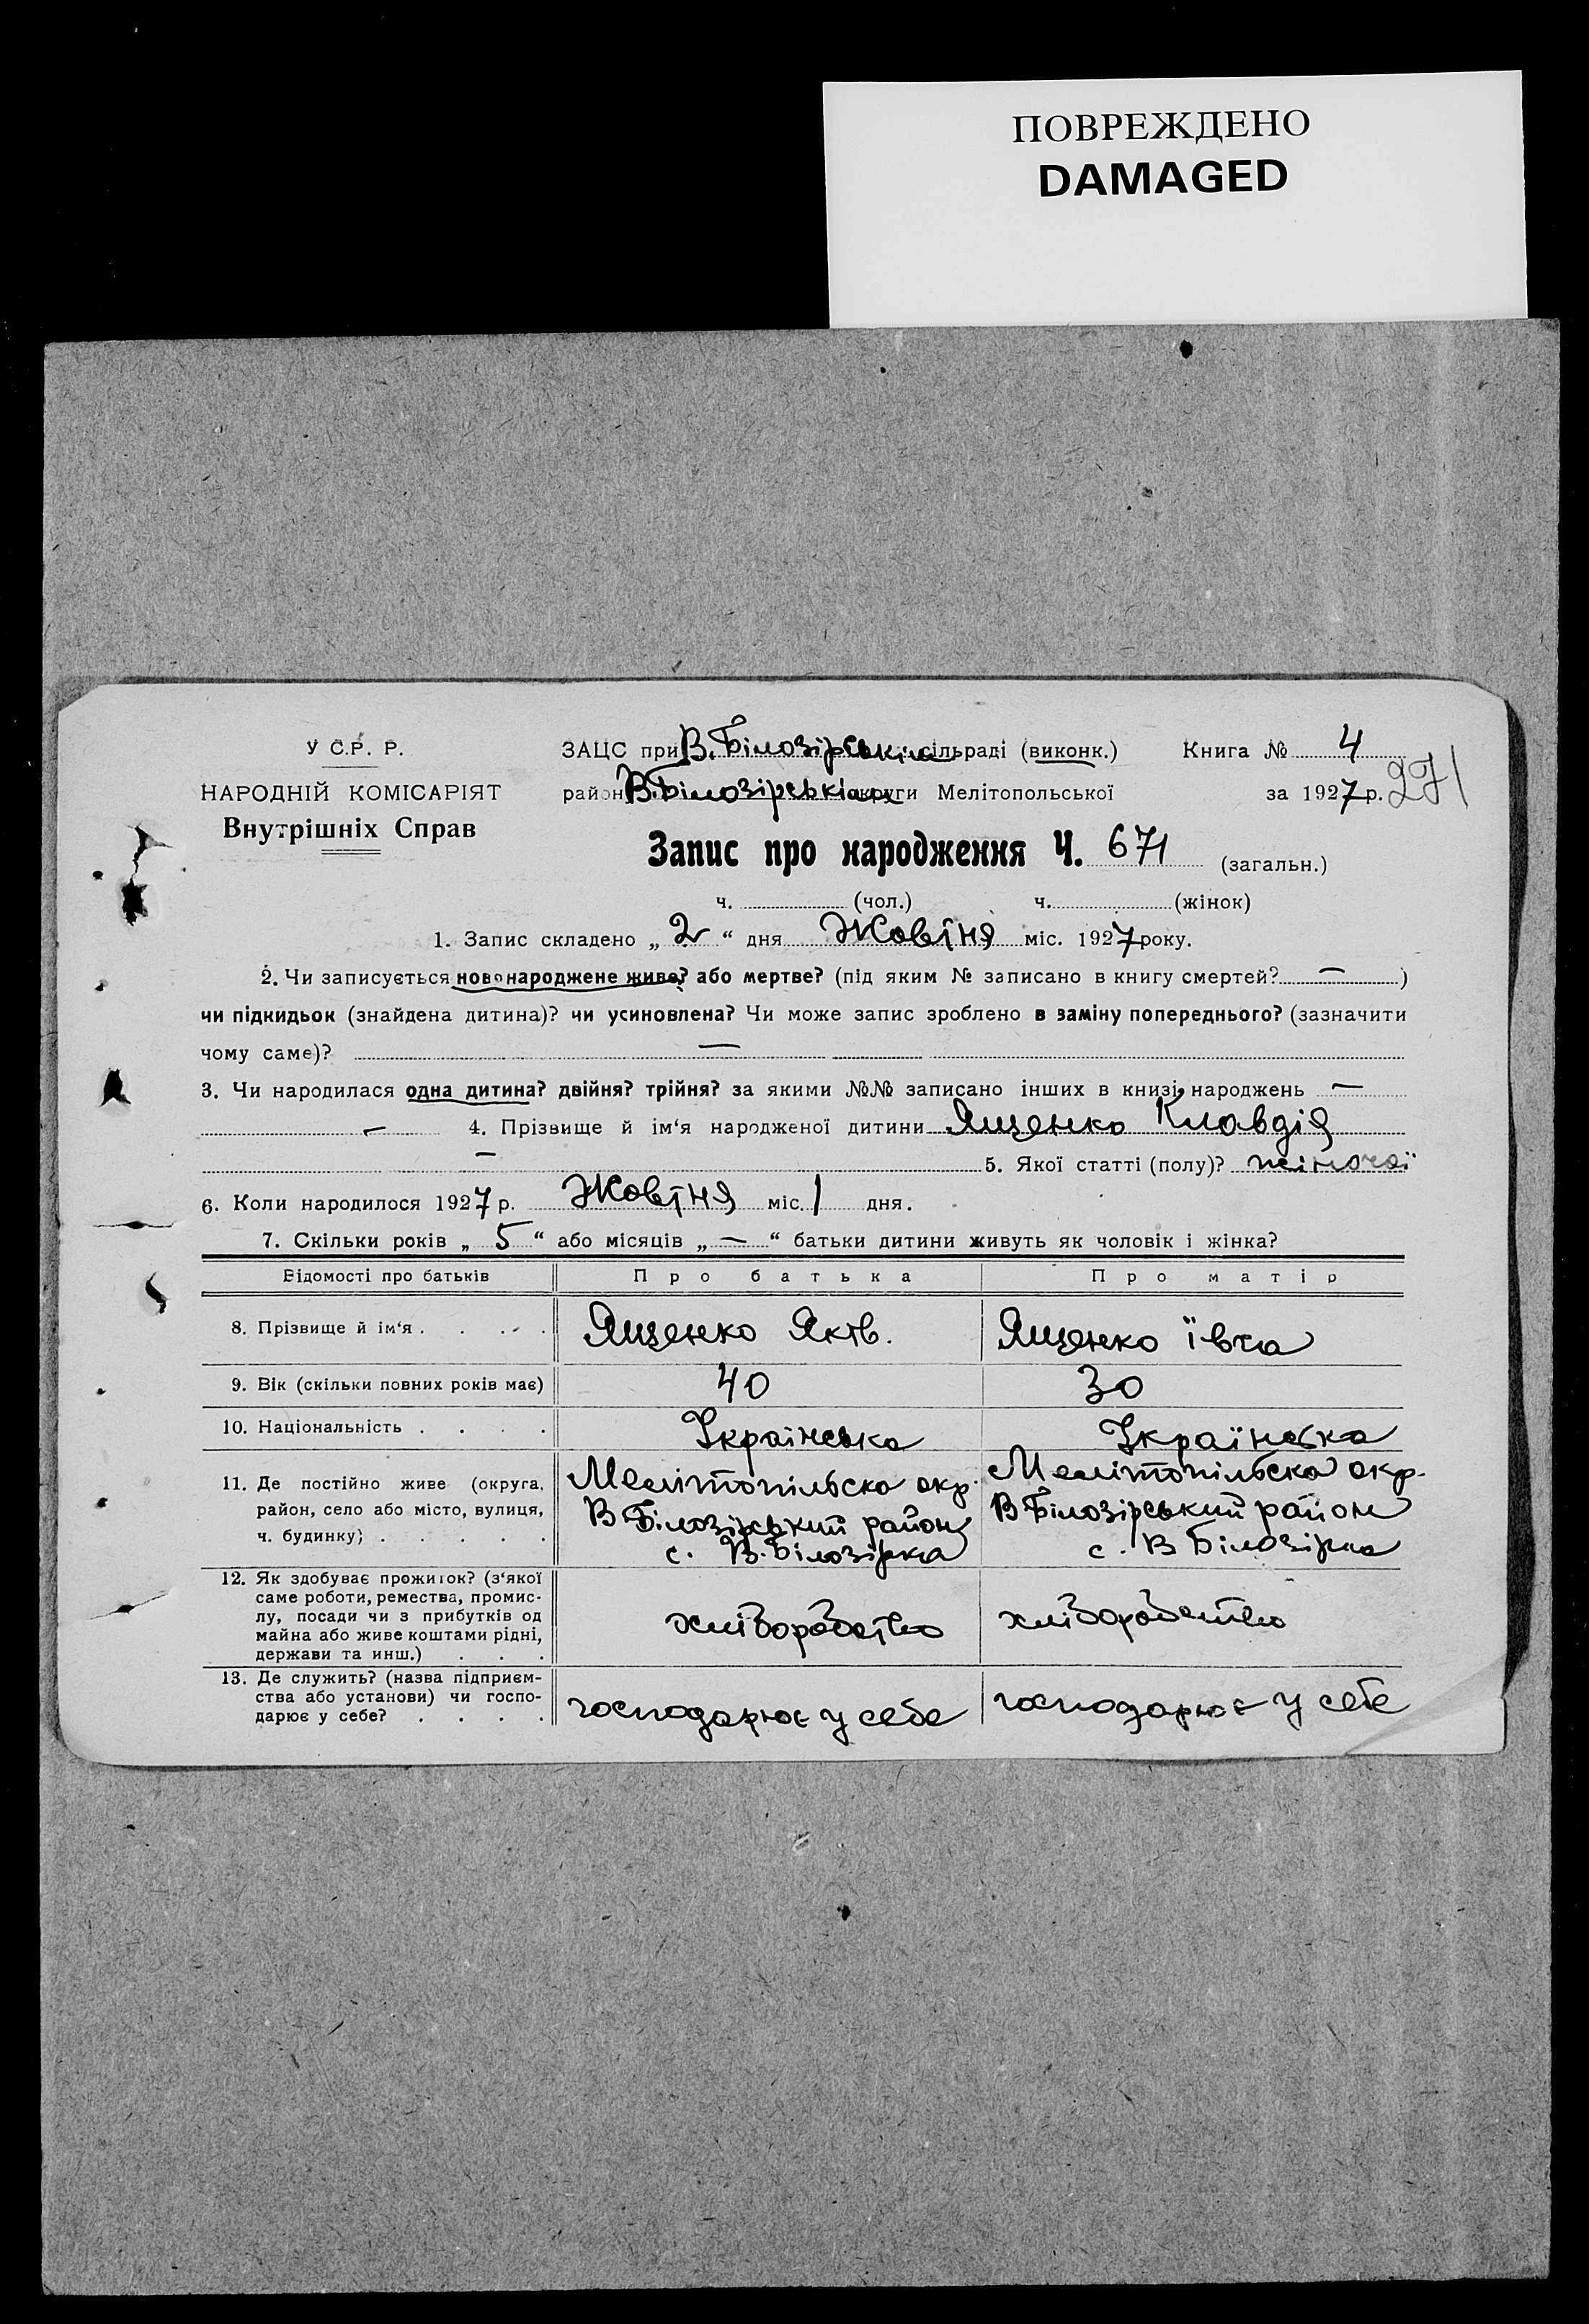 ПОВРЕЖДЕНО
DAMAGED
У С.Р. Р.
НАРОДНІЙ КОМІСАРІЯТ
Внутрішніх Справ
ЗАЦС при В. Білозірськім сільраді (виконк.) Книга № 4
район В Білозірськім округи Мелітопольської за 1927 р. 271
Запис про народження Ч. 671 (загальн.)
ч. (чол.) ч. (жінок)
1. Запис складено „ 2 “ дня Жовтня міс. 1927 року.
2. Чи записується новонароджене живе? або мертве? (під яким № записано в книгу смертей? — )
чи підкидьок (знайдена дитина)? чи усиновлена? Чи може запис зроблено в заміну попереднього? (зазначити
чому саме)? —
3. Чи народилася одна дитина? двійня? трійня? за якими №№ записано інших в книзі народжень —
— 4. Прізвище й ім‘я народженої дитини Ященко Клавдія
— 5. Якої статті (полу)? жіночої
6. Коли народилося 1927 р. Жовтня міс. 1 дня.
7. Скільки років „ 5 “ або місяців „ — “ батьки дитини живуть як чоловік і жінка?
Відомості про батьків Про батька Про матір
8. Прізвище й ім‘я . . . . Ященко Яків. Ященко Ївга
9. Вік (скільки повних років має) 40 30
10. Національність . . . . Українська Українська
11. Де постійно живе (округа, район, село або місто, вулиця, ч. будинку) . . . . .
Мелітопільска окр.
В Білозірський район
с. В. Білозірка
Мелітопільска окр.
В Білозірський район
с. В Білозірка
12. Як здобуває прожиток? (з‘якої
саме роботи, ремества, промис-
лу, посади чи з прибутків од
майна або живе коштами рідні,
держави та инш.) . . .
хліборобство хліборобство
13. Де служить? (назва підприєм-
ства або установи) чи госпо-
дарює у себе? . . . .
господарює у себе господарює у себе